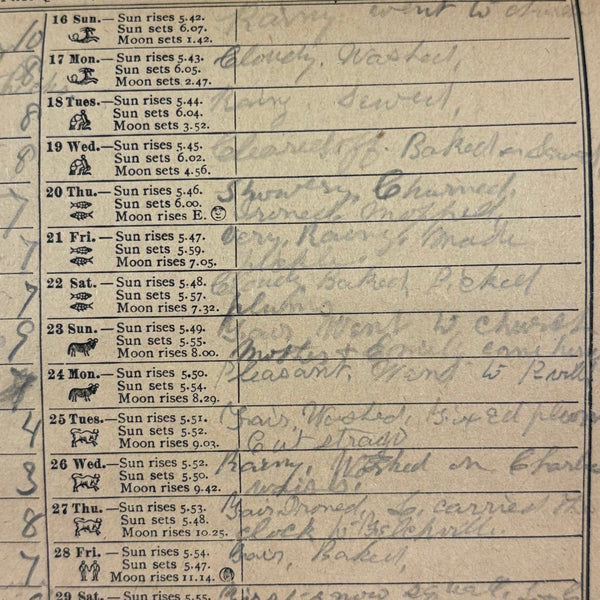 10
16 Sun.—Sun rises 5.42. Rainy. went to church
Sun sets 6.07.
Moon sets 1.42.
8
17 Mon.—Sun rises 5.43. Cloudy, Washed,
Sun sets 6.05.
Moon sets 2.47.
8
18 Tues.—Sun rises 5.44. Rainy Sewed,
Sun sets 6.04.
Moon sets 3.52.
8
19 Wed.—Sun rises 5.45. Cleared off. Baked
Sun sets 6.02.
Moon sets 4.56.
7
20 Thu.—Sun rises 5.46. Showery, Churned,
Sun sets 6.00. Ironed, Mopped,
Moon rises E.
7
21 Fri.—Sun rises 5.47. Very Rainy, Made
Sun sets 5.59.
Moon rises 7.05.
7
22 Sat.—Sun rises 5.48. Cloudy Baked, Picked
Sun sets 5.57. plums
Moon rises 7.32.
9
23 Sun.—Sun rises 5.49. Fair, Went to church
Sun sets 5.55. Mother +
Moon rises 8.00.
24 Mon.—Sun rises 5.50. Pleasant, Went to
Sun sets 5.54.
Moon rises 8.29.
4
25 Tues.—Sun rises 5.51. Fair, Washed, Fixed plums
Sun sets 5.52. Cut straw
Moon rises 9.03.
3
26 Wed.—Sun rises 5.52. Rainy, Worked on
Sun sets 5.50.
Moon rises 9.42.
8
27 Thu.—Sun rises 5.53. Fair, Ironed, carried the
Sun sets 5.48. clock to
Moon rises 10.25.
7
28 Fri.—Sun rises 5.54. Fair, Baked,
Sun sets 5.47.
Moon rises 11.14.
29 Sat.—Sun rises 5.55. First snow squall,